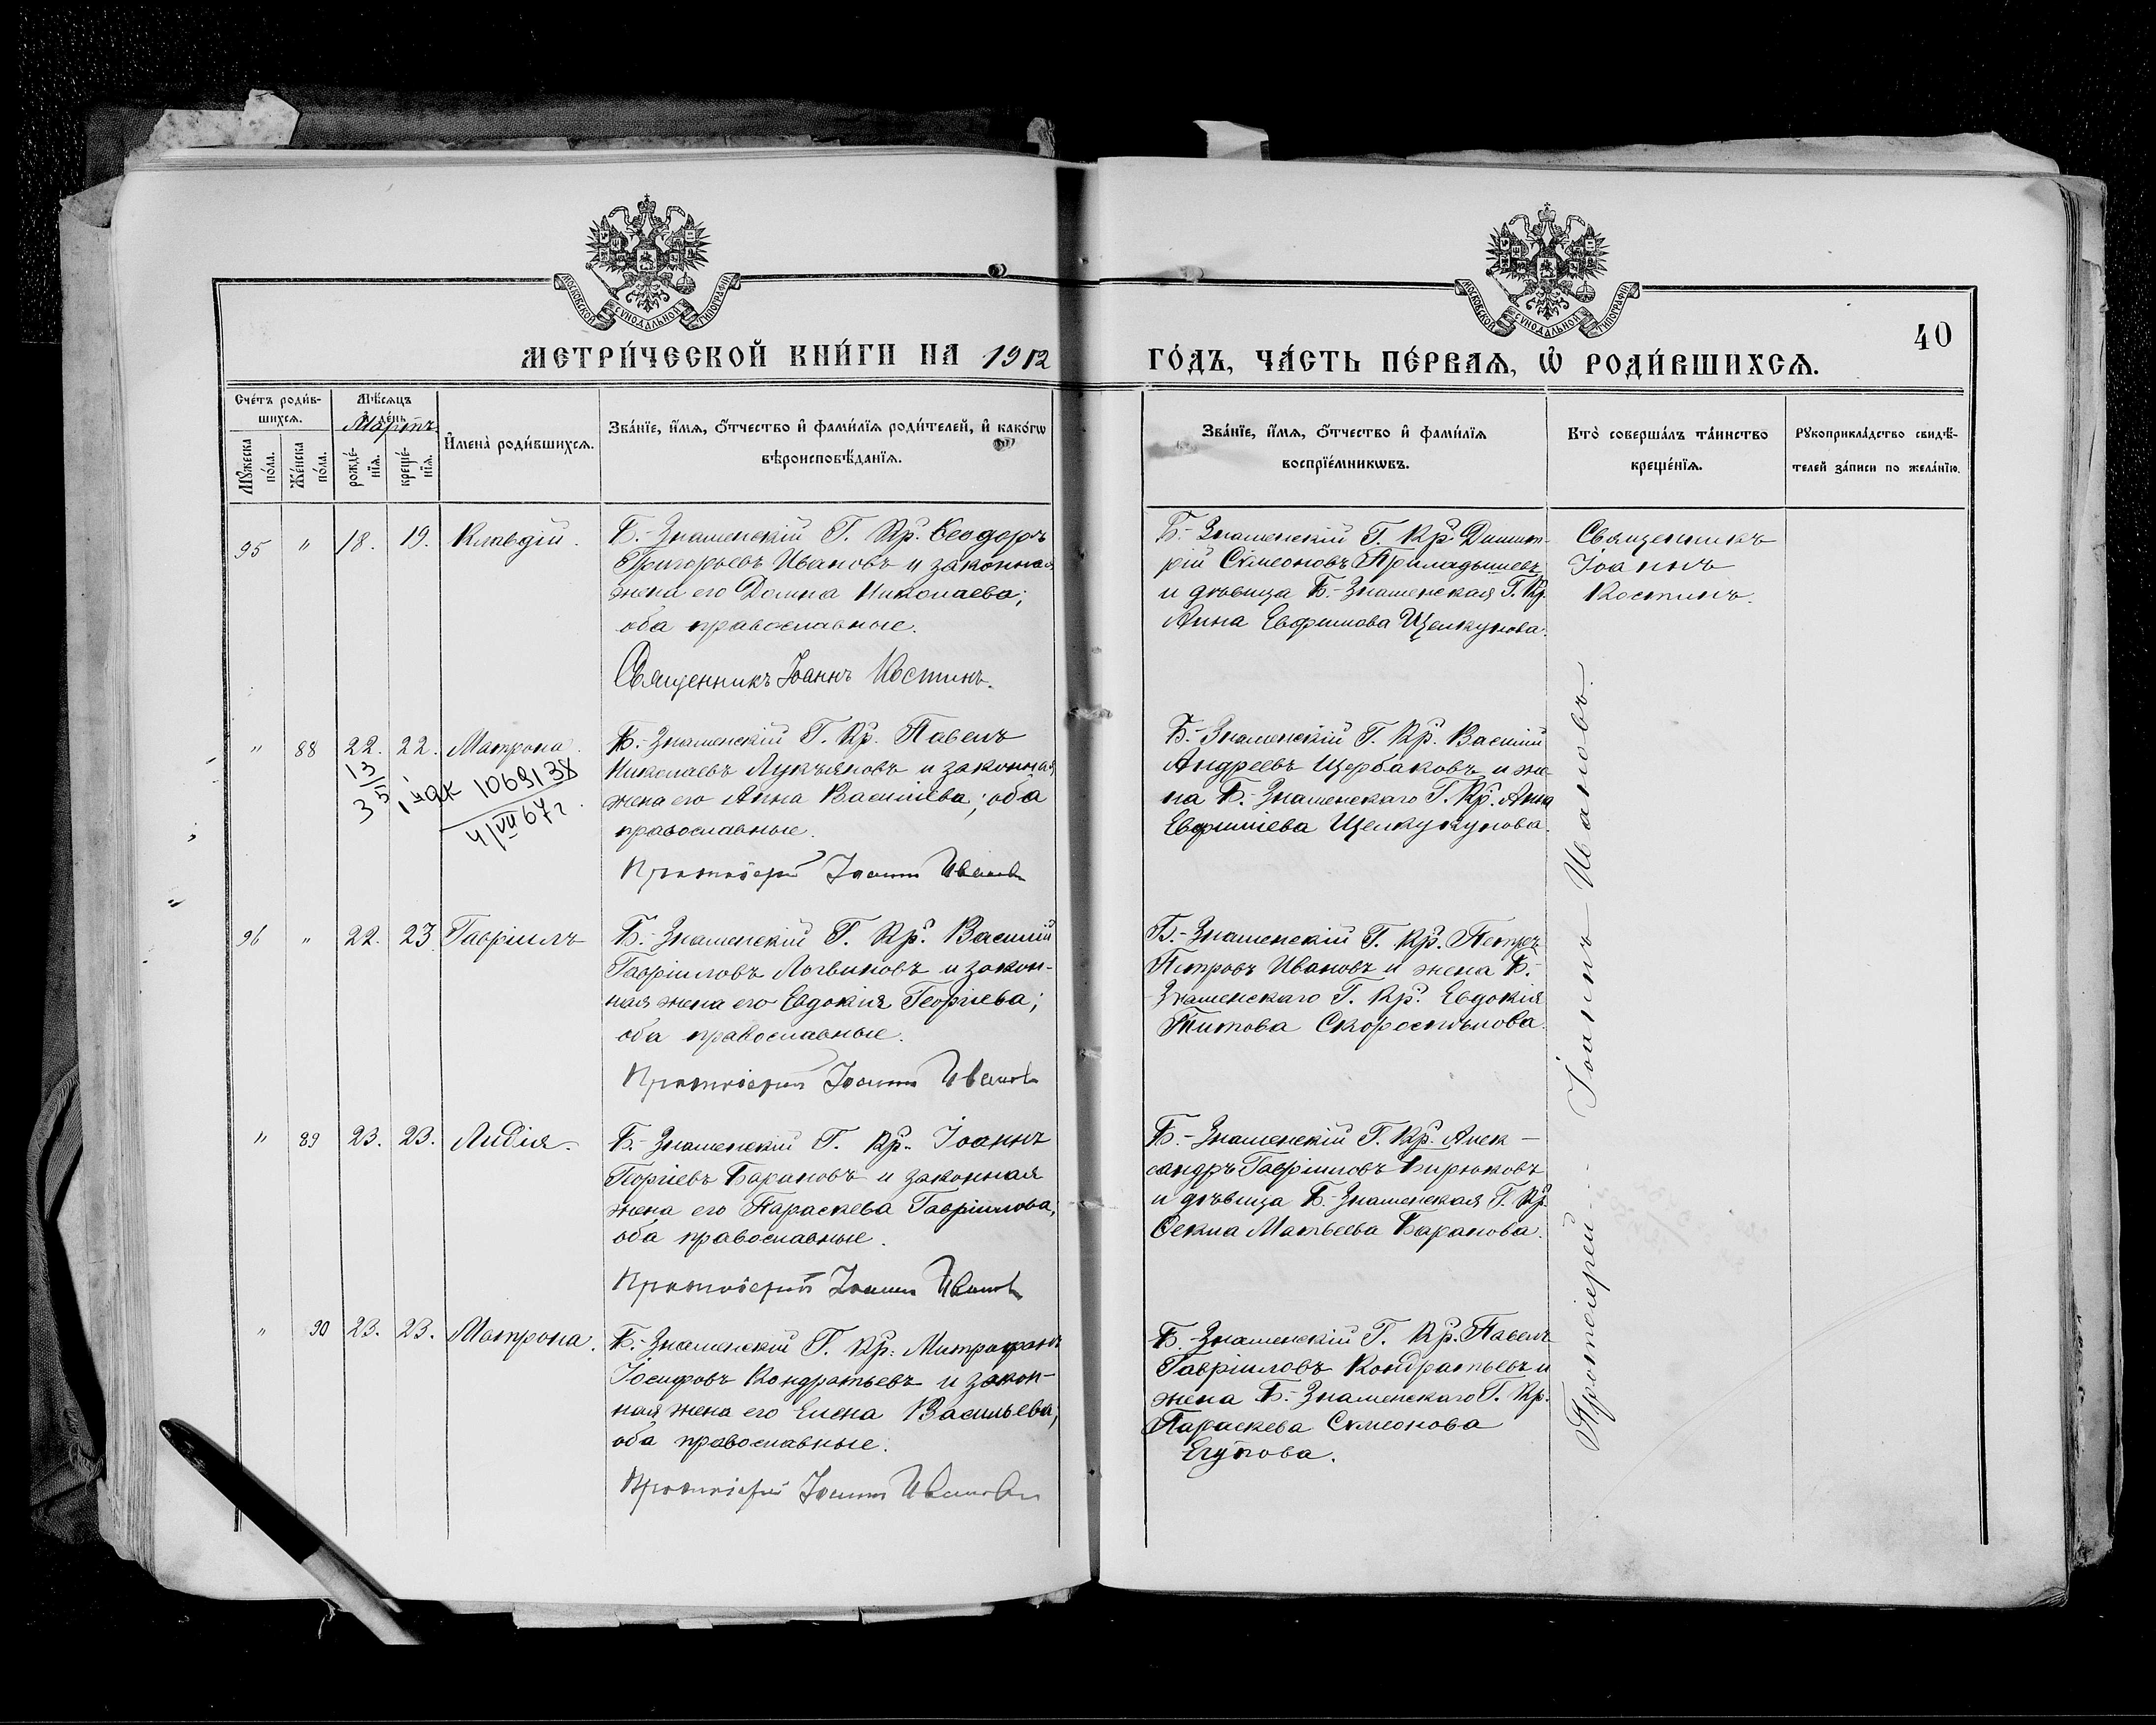 МОСКОВСКОЙ СУНОДАЛЬНОЙ ТИПОГРАФІИ
МОСКОВСКОЙ СУНОДАЛЬНОЙ ТИПОГРАФІИ
40
МЕТРИ́ЧЕСКОЙ КНИ́ГИ НА 1912
ГО́ДЪ, ЧА́СТЬ ПЕ́РВАѦ, Ѡ҆ РОДИ́ВШИХСѦ.
Сче́тъ роди́в-
шихсѧ.
Мѣ́сѧцъ
и҆ де́нь.
Мартъ.
Мꙋ́жеска
по́ла.
Же́нска
по́ла.
рожде́-
нїѧ.
креще́-
нїѧ.
И҆мена̀ роди́вшихсѧ.
Зва́нїе, и҆́мѧ, ѻ҆́тчество и҆ фами́лїѧ роди́телей, и҆ како́гѡ
вѣроисповѣ́данїѧ.
Зва́нїе, и҆́мѧ, ѻ҆́тчество и҆ фами́лїѧ
воспрїе́мникѡвъ.
Кто̀ соверша́лъ та́инство
креще́нїѧ.
Рꙋкоприкла́дство свидѣ́-
телей за́писи по жела́нїю.
95 " 18. 19. Клавдій.
Б.-Знаменскій Г. Кр. Ѳеодоръ
Григорьевъ Ивановъ и законная
жена его Домна Николаева;
оба православные.
Священникъ Іоаннъ Костинъ.
Б.-Знаменскій Г. Кр. Димит-
рій Сѵмеоновъ Приладышевъ
и дѣвица Б.-Знаменская Г. Кр.
Анна Евфимова Щелкунова.
Священникъ
Іоаннъ
Костинъ.
" 88 22. 22. Матрона.
13
35
1 чдк 1069138
4/VII 67 г.
Б.-Знаменскій Г. Кр. Павелъ
Николаевъ Лукъяновъ и законная
жена его Анна Васильева; оба
православные.
Протоіерей Іоаннъ Ивановъ
Б.-Знаменскій Г. Кр. Василій
Андреевъ Щербаковъ и же-
на Б.-Знаменскаго Г. Кр. Анна
Евфимiева Щелкукунова.
96 " 22. 23 Гавріилъ
Б.-Знаменскій Г. Кр. Василій
Гавріиловъ Логвиновъ и закон-
ная жена его Евдокія Георгіева;
оба православные.
Протоіерей Іоаннъ Ивановъ
Б.-Знаменскій Г. Кр. Петръ
Петровъ Ивановъ и жена Б.-
Знаменскаго Г. Кр. Евдокія
Титова Скороспѣлова.
" 89 23. 23. Лидія.
Б.-Знаменскій Г. Кр. Іоаннъ
Георгіевъ Барановъ и законная
жена его Параскева Гавріилова;
оба православные.
Протоіерей Іоаннъ Ивановъ
Б.-Знаменскій Г. Кр. Алек-
сандръ Гавріиловъ Бирюковъ
и дѣвица Б.-Знаменская Г. Кр.
Ѳекла Матвеева Баранова.
" 90 23. 23. Матрона.
Б.-Знаменскій Г. Кр. Митрофанъ
Іосифовъ Кондратьевъ и закон-
ная жена его Елена Васильева;
оба православные.
Протоіерей Іоаннъ Ивановъ
Б.-Знаменскій Г. Кр. Павелъ
Гавріиловъ Кондратьевъ и
жена Б.-Знаменскаго Г. Кр.
Параскева Сѵмеонова
Егупова.
Протоіерей Іоаннъ Ивановъ.